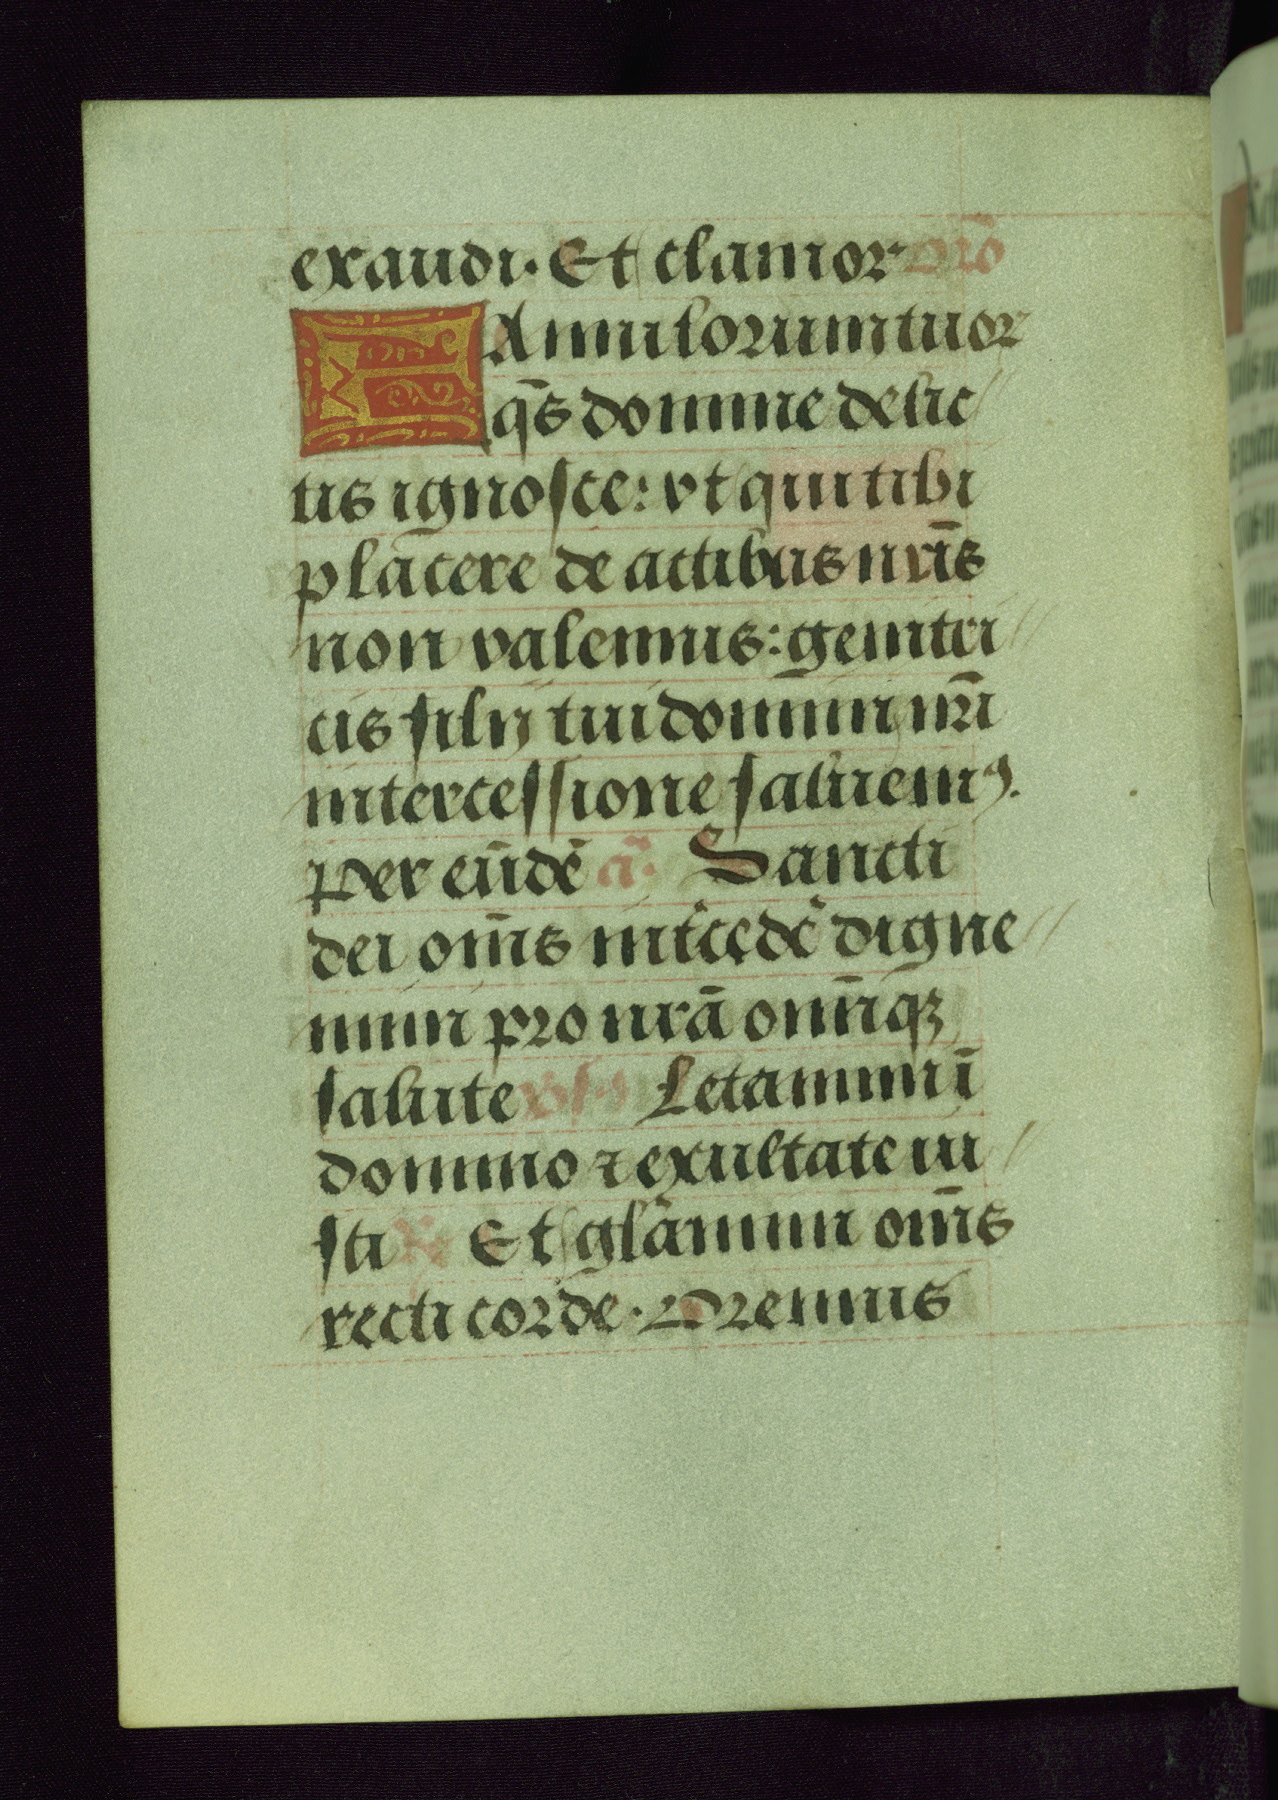 exaudi. Et clamor orō
FAmulorum tuor
q̄s domine delic
tis ignosce: vt qui tibi
placere de actibus nr̄is
non valemus: genitri
cis filij tui domini nr̄i
intercessione saluemꝰ.
Per eūdē a͞. Sancti
dei om̄s int̄cedē digne
mini pro nrā omniūqꝫ
salute v̄s. Letamini ī
domino ⁊ exultate iu
sti ℟ Et gl̄amini om̄s
recti corde. Oremus